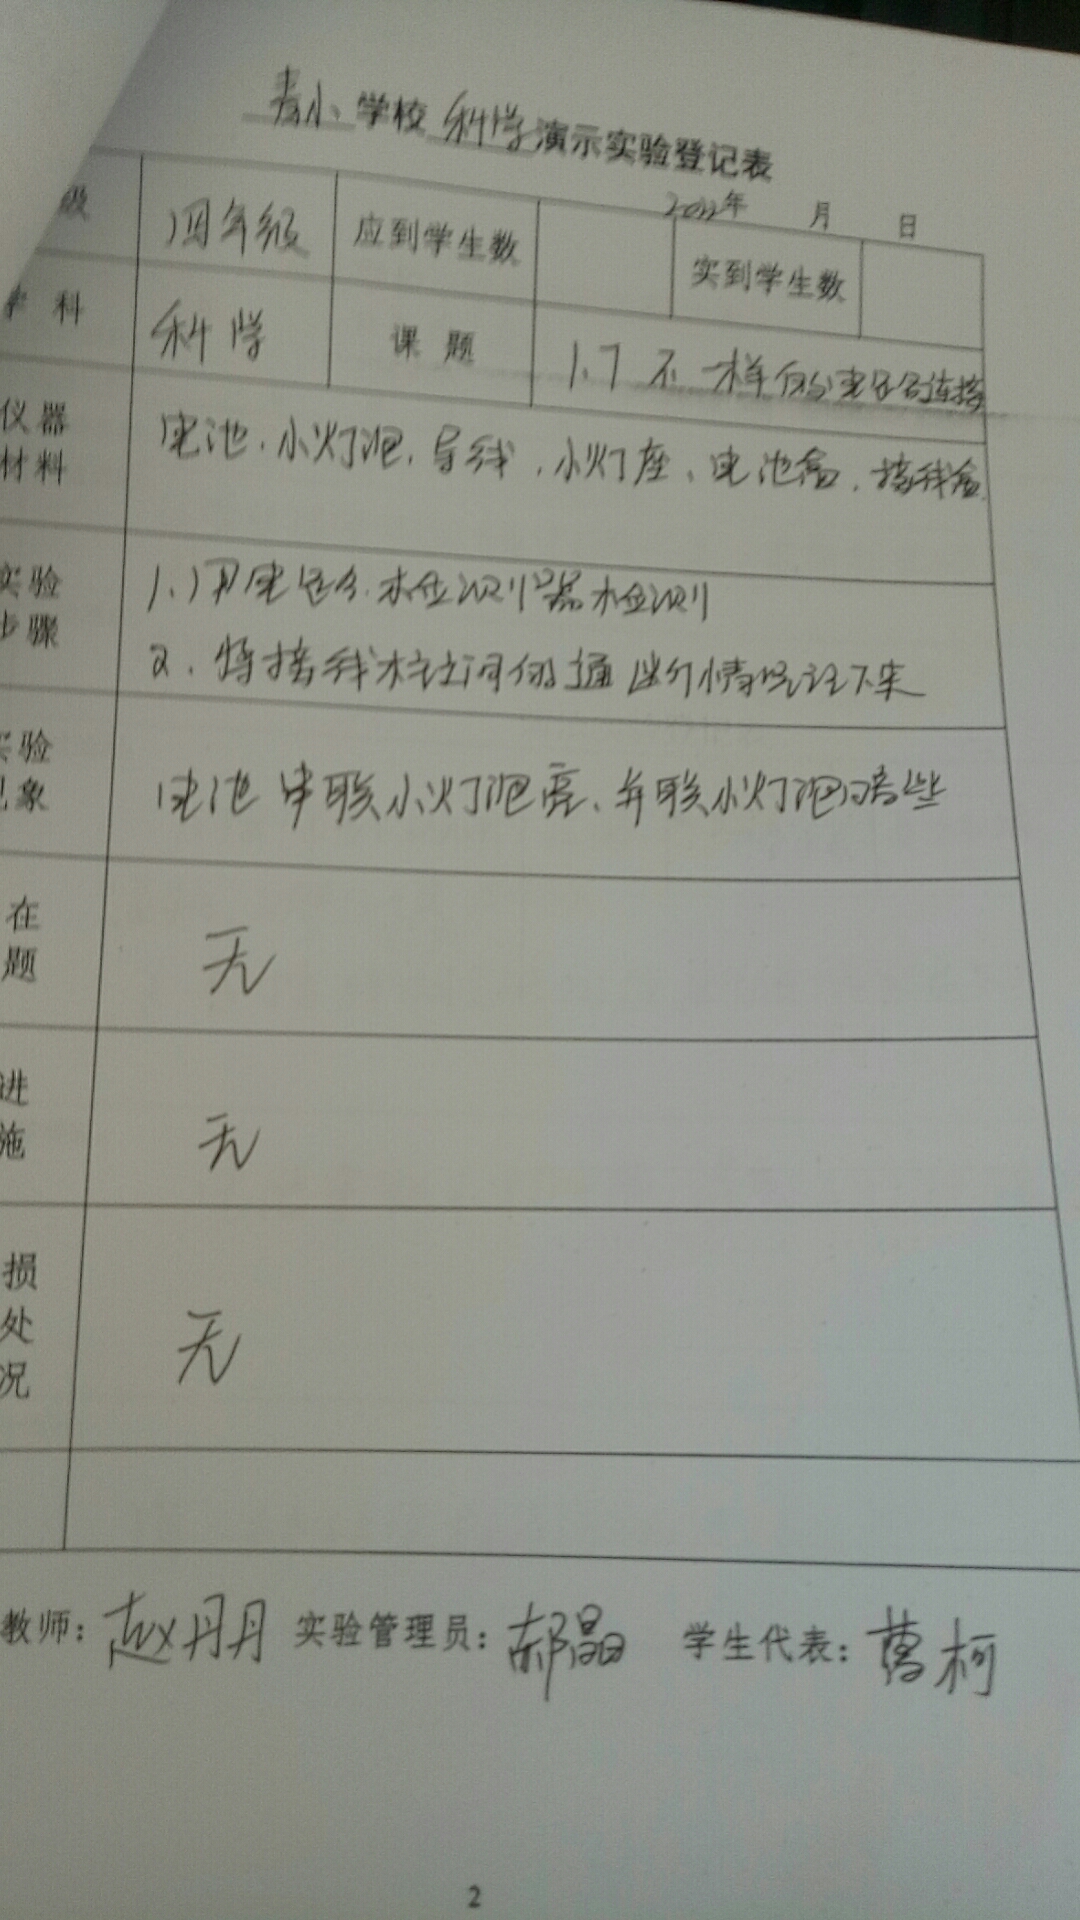 青小 学校 科学 演示实验登记表
2022年 月 日
级 四年级 应到学生数 实到学生数
科 科学 课题 1.7 不一样的电路连接
仪器
材料
电池、小灯泡、导线、小灯座、电池盒、接线盒
实验
步骤
1.用电路检测器检测
2.将接线柱之间的通断情况记下来
验
象
电池串联小灯泡亮、并联小灯泡暗些
在
题
无
进
施
无
损
处
况
无
教师：赵丹丹 实验管理员：郝晶 学生代表：柯
2